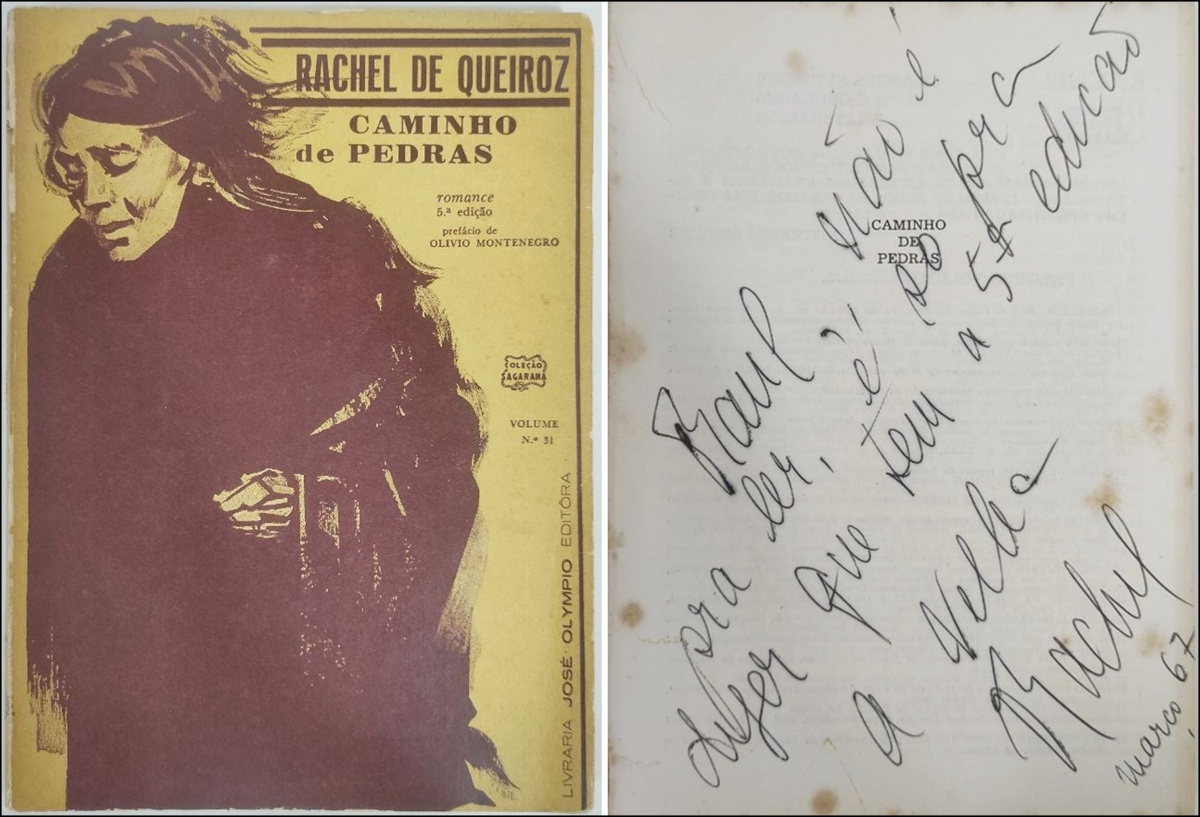 RACHEL DE QUEIROZ
CAMINHO
de PEDRAS
romance
5.ª edição
prefácio de
OLIVIO MONTENEGRO
COLEÇÃO
SAGARANA
VOLUME
N.º 31
LIVRARIA JOSÉ OLYMPIO EDITÔRA
CAMINHO
DE
PEDRAS
Raul não é
pra ler, é só pra
dizer que tem a 5ª edicão
a Velha
Rachel
março, 67